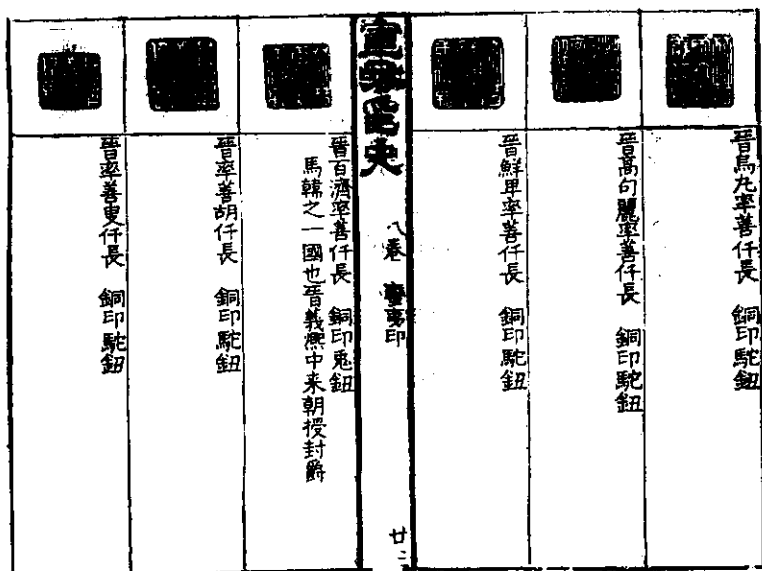 晉烏丸率善仟長 銅印駝鈕
晉高句麗率善仟長 銅印駝鈕
晉鮮卑率善仟長 銅印駝鈕
八卷 蠻夷印
廿二
晉百濟率善仟長 銅印兎鈕
馬韓之一國也晉義熈中来朝授封爵
晉率善胡仟長 銅印駝鈕
晉率善叟仟長 銅印駝鈕